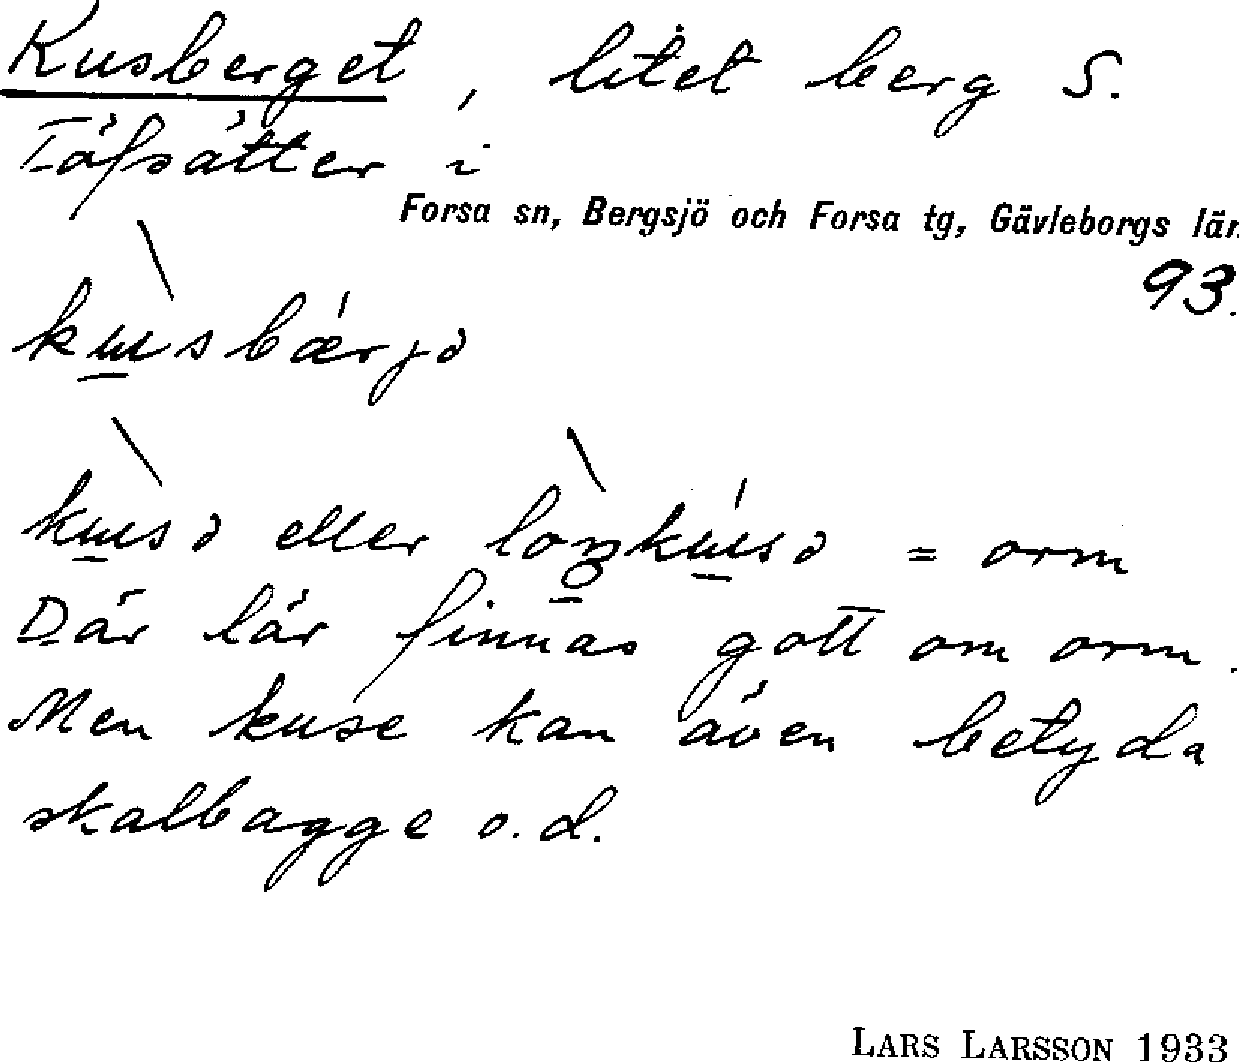 Kusberget, litet berg S.
Täfsätter i
Forsa sn, Bergsjö och Forsa tg, Gävleborgs län
93.
kɯsbærjə
kɯsə eller loŋkɯsə = orm
Där lär finnas gott om orm.
Men kuse kan även betyda
skalbagge o.d.
LARS LARSSON 1933